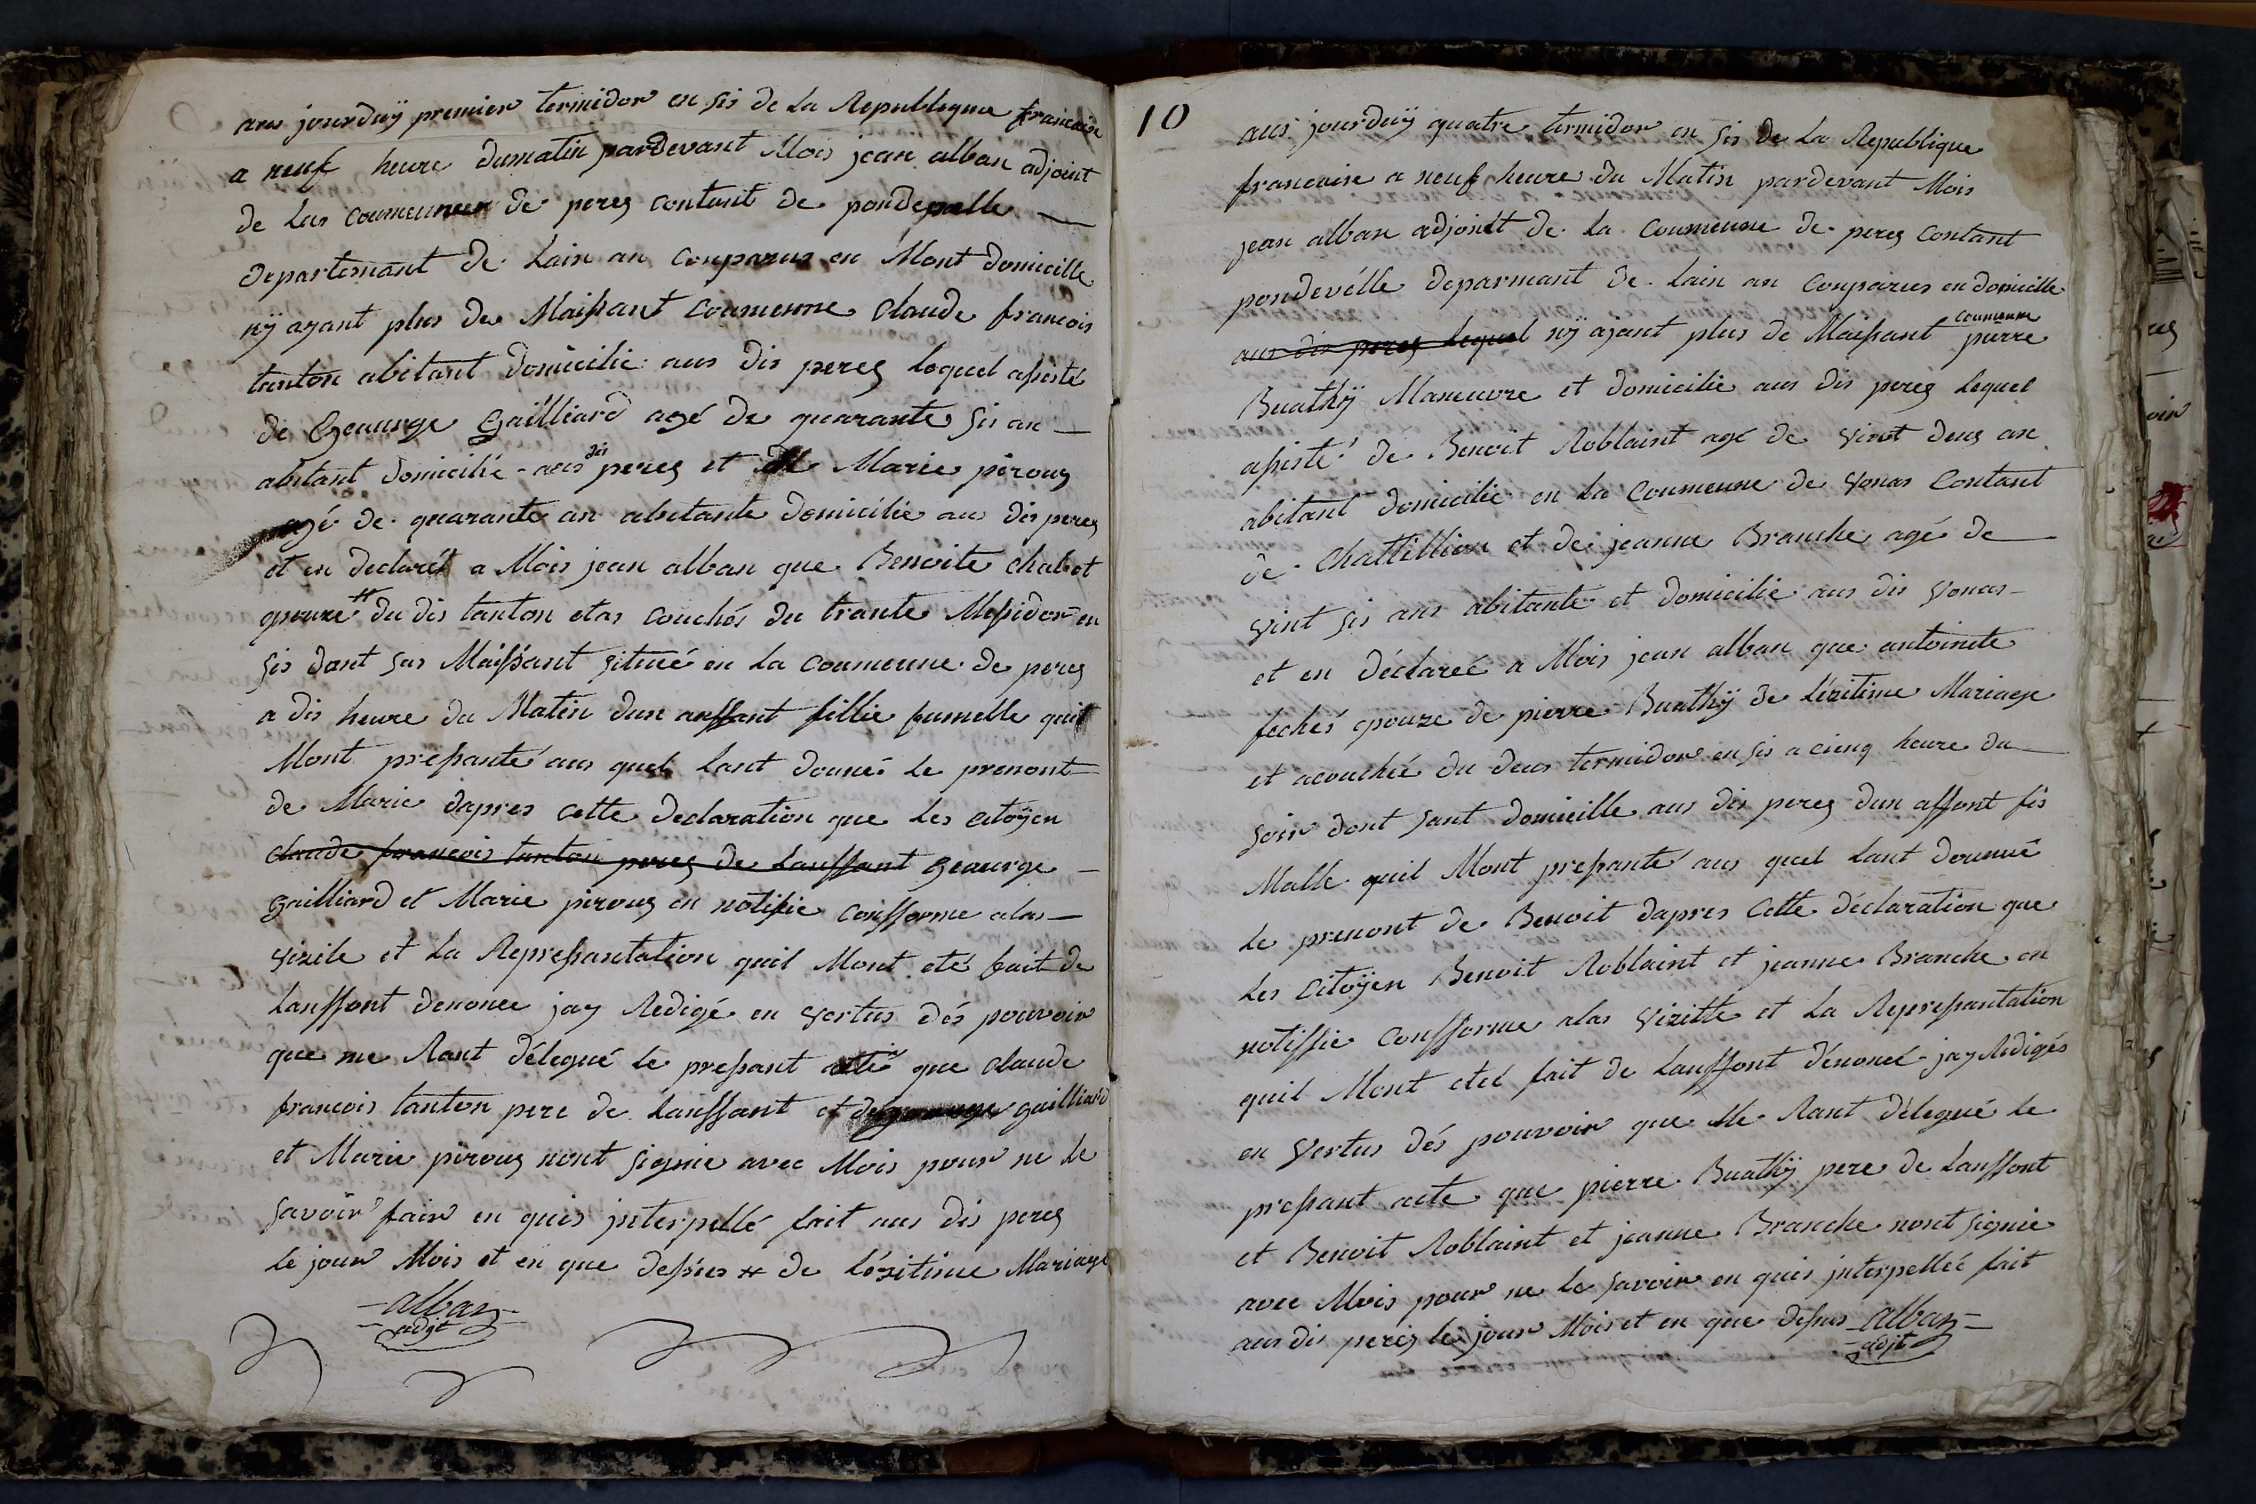 aus jourduÿ premier termidor en sis de la Republique francaise
a neuf heure dumatin pardevant Mois jean alban adjoint
de las coumeuneer de perez contant de pondevelle
departemant de Lain an conparus en Mont domicille
nÿ ayant plus de Maisßant coumeune Claude francois
tanton abitant domicilie aus dis perez lequel asisté
de Geaurge Gailliard agé de quarante sis an
abitant domicilié aus dis perez et Marie pirouz
agé de quarante an abitante domicilie aus dis perez
et en declarét a Mois jean alban que Benoite chabot
epouze # du dis tanton etas couchés du trante Messidor en
sis dant sas Maissant situué en la coumeune de perez
a dis heure du Matin dun anffant fillie fumelle quil
Mont pressanté aus quel lant donné le prenont
de Marie dapres cette declaration que les citoÿen
claude francois tanton perez de Lauffant Geaurge
gailliard et Marie pirouz en notifie confforme alas
vizite et la Repressantation quil Mont eté fait de
Lanffont denonce jay Redigé en vertus dés pouvoir
que me Sant délegué le pressant acte que claude
francois tanton pere de Lanffant et de gailliard
et Marie pirouz nont signie avec Mois pour ne le
savoir fair en quis jnterpellé fait aus dis perez
le jour Mois et en que dessus # de Lézitime Mariage
alban
adjt
10
aus jourduÿ quatre termidor en sis de la Republique
francaise a neuf heure du Matin pardevant Mois
jean alban adjoint de la Coumeune de perez contant
pondevélle deparmant de Lain an conparus en domicille
aus dis perez lequel nÿ ajant plus de Maissant coumeune pierre
Buathÿ Maneuvre et domicilie aus dis perez lequel
assisté de Benoit Roblaint agé de vint deuz an
abitant domicilie en la Coumeune de vonas Contant
de Chattillion et de jeanne Branche agé de
vint sis ans abitante et domicilie aus dis vonas
et en déclareé a Mois jean alban que antoinete
feches epouze de pierre Buathÿ de Lézitime Mariage
et acouchée du deus termidor en sis a cinq heure du
soir dont sant domicille aus dis perez dun affont fis
Malle quil Mont pressanté aus quel lant dounné
le prenont de Benoit dapres Cette déclaration que
les Citoÿen Benoit Roblaint et jeanne Branche en
notiffie Confforme alas vizitte et la Repressantation
quil Mont etet fait de Lauffont dénoncé jay Redigés
en vertus dés pouvoir que Me Sant délegué le
pressant acte que pierre Buathÿ pere de Lauffont
et Benoit Roblaint et jeanne Branche nont signie
avec Mois pour ne le savoir en quis jnterpelleé fait
aus dis perez le jour Mois et en que dessus alban
adjt